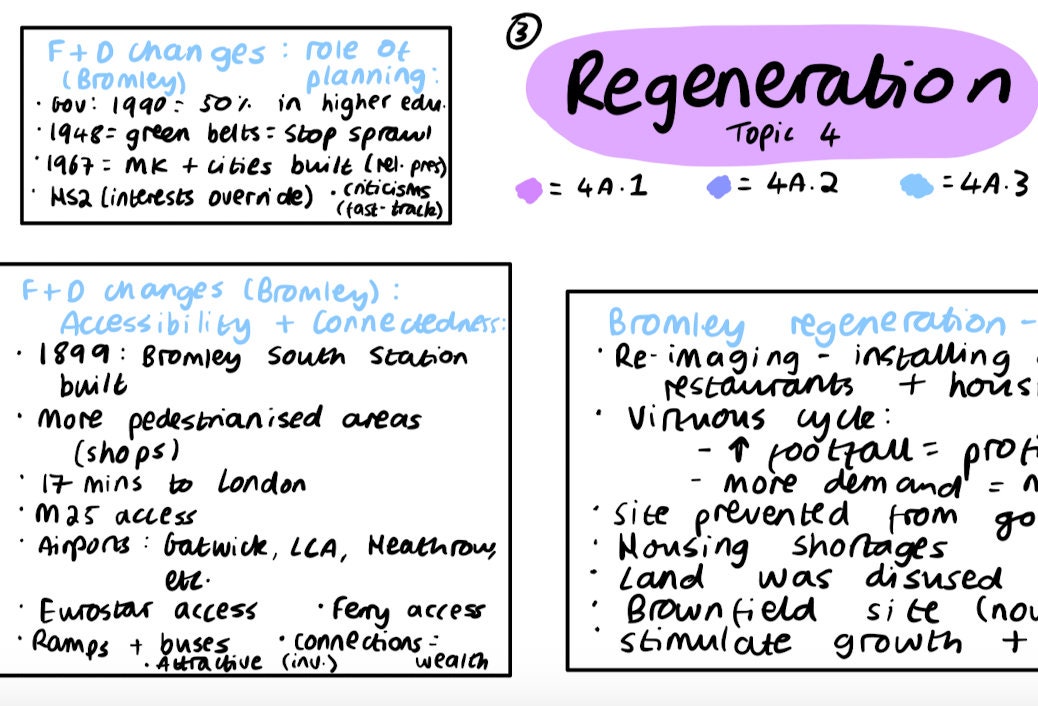 F+D changes : role of
(Bromley) planning:
· Gov: 1990 = 50% in higher edu.
· 1948 = green belts = stop sprawl
· 1967 = MK + cities built (rel. pres)
· HS2 (interests override) · criticisms
(fast-track)
③
Regeneration
Topic 4
= 4A.1 = 4A.2 = 4A.3
F+D changes (Bromley) :
Accessibility + Connectedness:
· 1899 : Bromley South Station
built
· More pedestrianised areas
(shops)
· 17 mins to London
· M25 access
· Airports : Gatwick, LCA, Heathrow,
etc.
· Eurostar access · Ferry access
· Ramps + buses · Connections =
· Attractive (inv.) wealth
Bromley regeneration -
· Re-imaging - installing
restaurants +
· Virtuous cycle :
- ↑ footfall =
- more demand =
· Site prevented from
· Housing shortages
· Land was disused
· Brownfield site
· stimulate growth +